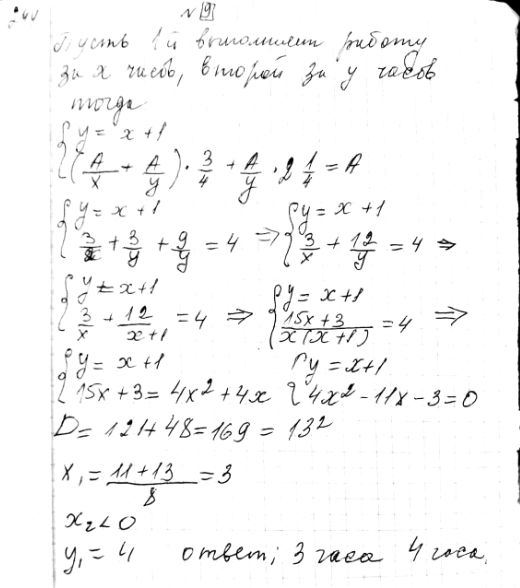 № 9
Пусть 1й выполнит работу
за x часов, второй за y часов
тогда
{ y = x + 1
{ (A/x + A/y) · 3/4 + A/y · 2 1/4 = A
{ y = x + 1 { y = x + 1
{ 3/x + 3/y + 9/y = 4 ⇒ { 3/x + 12/y = 4 ⇒
{ y = x + 1 { y = x + 1
{ 3/x + 12/(x+1) = 4 ⇒ { (15x + 3)/(x(x+1)) = 4 ⇒
{ y = x + 1 { y = x+1
{ 15x + 3 = 4x² + 4x { 4x² - 11x - 3 = 0
D = 121 + 48 = 169 = 13²
x₁ = (11 + 13)/8 = 3
x₂ < 0
y₁ = 4 ответ; 3 часа 4 часа.